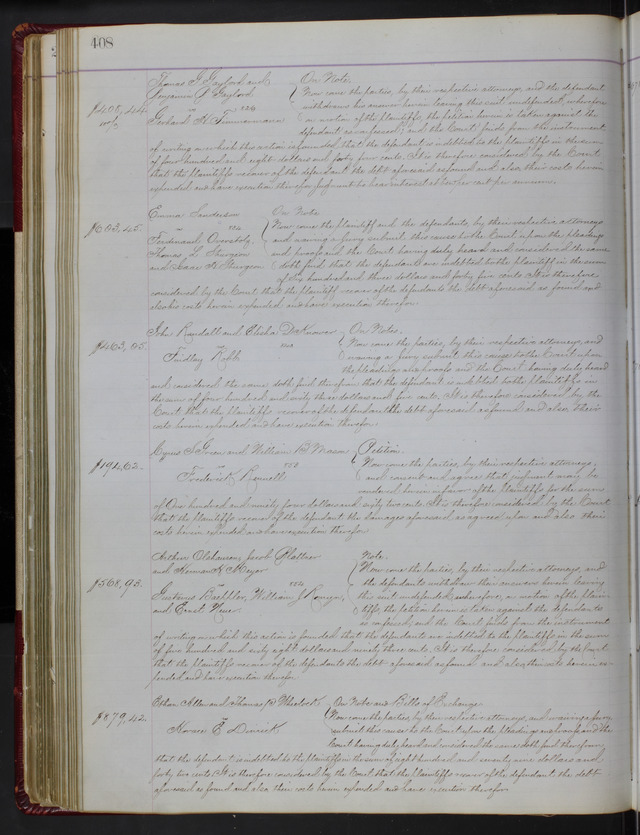 408
Thomas J. Gaylord and
Benjamin P. Gaylord
vs
Gerhard H. Timmermann
$408,44
On Note.
Now come the parties, by their respective attorneys, and the defendant
withdraws his answer herein leaving this suit undefended, wherefore
on motion of the plaintiffs the petition herein is taken against the
defendant as confessed; and the Court finds from the instrument
of writing on which this action is founded, that the defendant is indebted to the plaintiffs in the sum
of four hundred and eight dollars and forty four cents. It is therefore considered by the Court
that the plaintiffs recover of the defendant the debt aforesaid as found and also their costs herein
expended and have execution therefor. Judgment to bear interest at ten per cent per annum.
Emma Sanderson
vs
Ferdinand Overstolz,
Thomas L. Sturgeon
and Isaac H. Sturgeon
$603,45.
On Note
Now come the plaintiff and the defendants, by their respective attorneys
and waiving a jury submit this cause to the Court upon the pleadings
and proofs and the Court having duly heard and considered the same
doth find that the defendants are indebted to the plaintiff in the sum
of six hundred and three dollars and forty five cents. It is therefore
considered by the Court that the plaintiff recover of the defendants the debt aforesaid as found and
also his costs herein expended and have execution therefor.
John Randall and Elisha
vs
Findley Robb
$463,05
On Notes.
Now come the parties, by their respective attorneys, and
waiving a jury submit this cause to the Court upon
the pleadings and proofs and the Court having duly heard
and considered the same doth find therefrom that the defendant is indebted to the plaintiffs in
the sum of four hundred and sixty three dollars and five cents. It is therefore considered by the
Court that the plaintiffs recover of the defendant the debt aforesaid as found and also their
costs herein expended and have execution therefor.
Cyrus and William B.
vs
Frederick
$194,62
Petition.
Now come the parties, by their respective attorneys,
and consent and agree that judgment may be
rendered herein in favor of the plaintiffs for the sum
of One hundred and ninety four dollars and sixty two cents. It is therefore considered by the Court
that the plaintiffs recover of the defendant the damages aforesaid as agreed upon and also their
costs herein expended and have execution therefor
Arthur Olshausen, Jacob Plattner
and Herman H. Meyer
vs
Gustavus William J.
and Ernst
$568,93.
Note.
Now come the parties, by their respective attorneys, and
the defendants withdraw their answers herein leaving
this suit undefended, wherefore, on motion of the plain-
tiffs, the petition herein is taken against the defendants
as confessed; and the Court finds from the instrument
of writing on which this action is founded, that the defendants are indebted to the plaintiffs in the sum
of five hundred and sixty eight dollars and ninety three cents. It is therefore considered by the Court
that the plaintiffs recover of the defendants the debt aforesaid as found and also their costs herein ex-
pended and have execution therefor.
Ethan Allen and Thomas B. Wheelock
vs
Horace E. Dimick
$879,42.
On Note and Bills of Exchange.
Now come the parties, by their respective attorneys, and waiving a jury
submit this cause to the Court upon the pleadings and proofs and the
Court having duly heard and considered the same doth find therefrom
that the defendant is indebted to the plaintiffs in the sum of eight hundred and seventy nine dollars and
forty two cents. It is therefore considered by the Court that the plaintiffs recover of the defendant the debt
aforesaid as found and also their costs herein expended and have execution therefor.